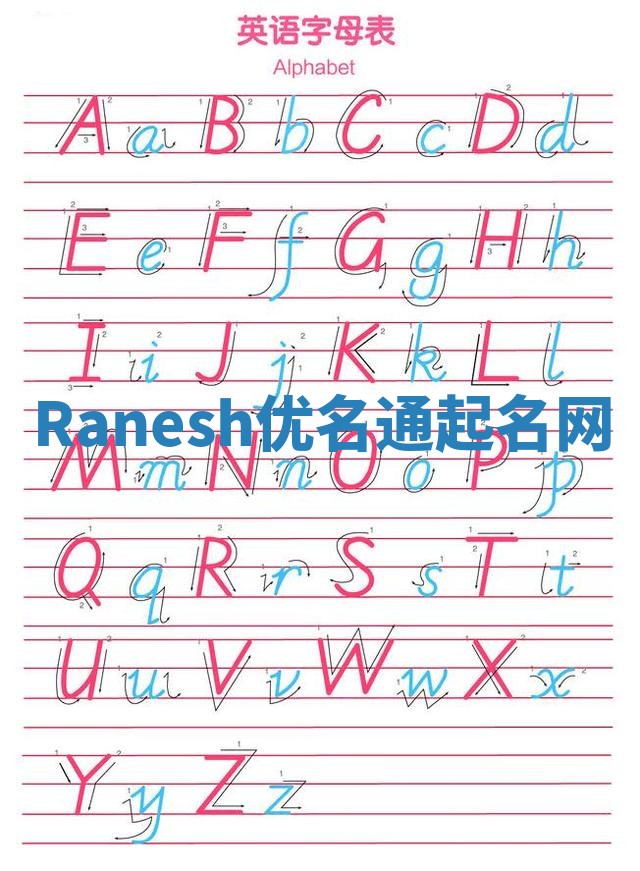 英语字母表
Alphabet
A a B b C c D d
E e F f G g H h
I i J j K k L l
Ranesh优名通起名网
M m N n O o P p
Q q R r S s T t
U u V v W w X x
Y y Z z